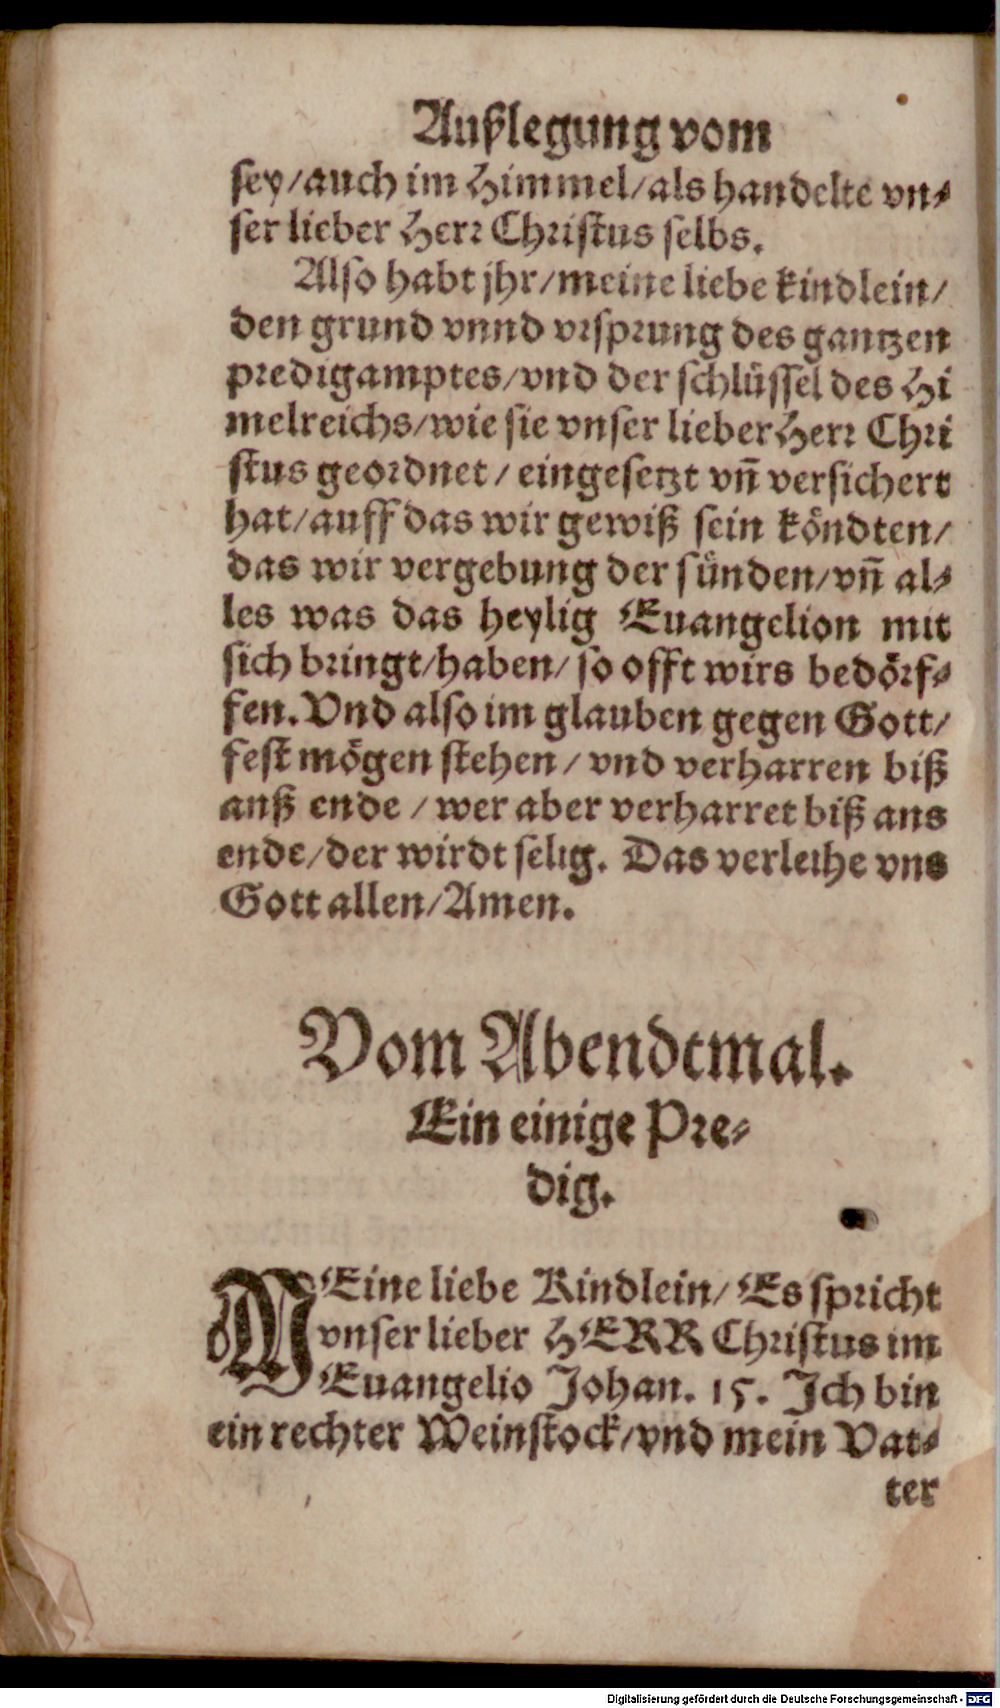 Außlegung vom
sey/auch im Himmel/als handelte vn⸗
ser lieber Herr Christus selbs.
Also habt jhr/meine liebe kindlein/
den grund vnnd vrsprung des gantzen
predigamptes/vnd der schlüssel des Hi
melreichs/wie sie vnser lieber Herr Chri
stus geordnet/eingesetzt vn̄ versichert
hat/auff das wir gewiß sein köndten/
das wir vergebung der sünden/vn̄ al⸗
les was das heylig Euangelion mit
sich bringt/haben/so offt wirs bedörf⸗
fen. Vnd also im glauben gegen Gott/
fest mögen stehen/vnd verharren biß
anß ende/wer aber verharret biß ans
ende/der wirdt selig. Das verleihe vns
Gott allen/Amen.
Vom Abendtmal.
Ein einige Pre⸗
dig.
MEine liebe Kindlein/Es spricht
vnser lieber HERR Christus im
Euangelio Johan. 15. Ich bin
ein rechter Weinstock/vnd mein Vat⸗
ter
Digitalisierung gefördert durch die Deutsche Forschungsgemeinschaft - DFG